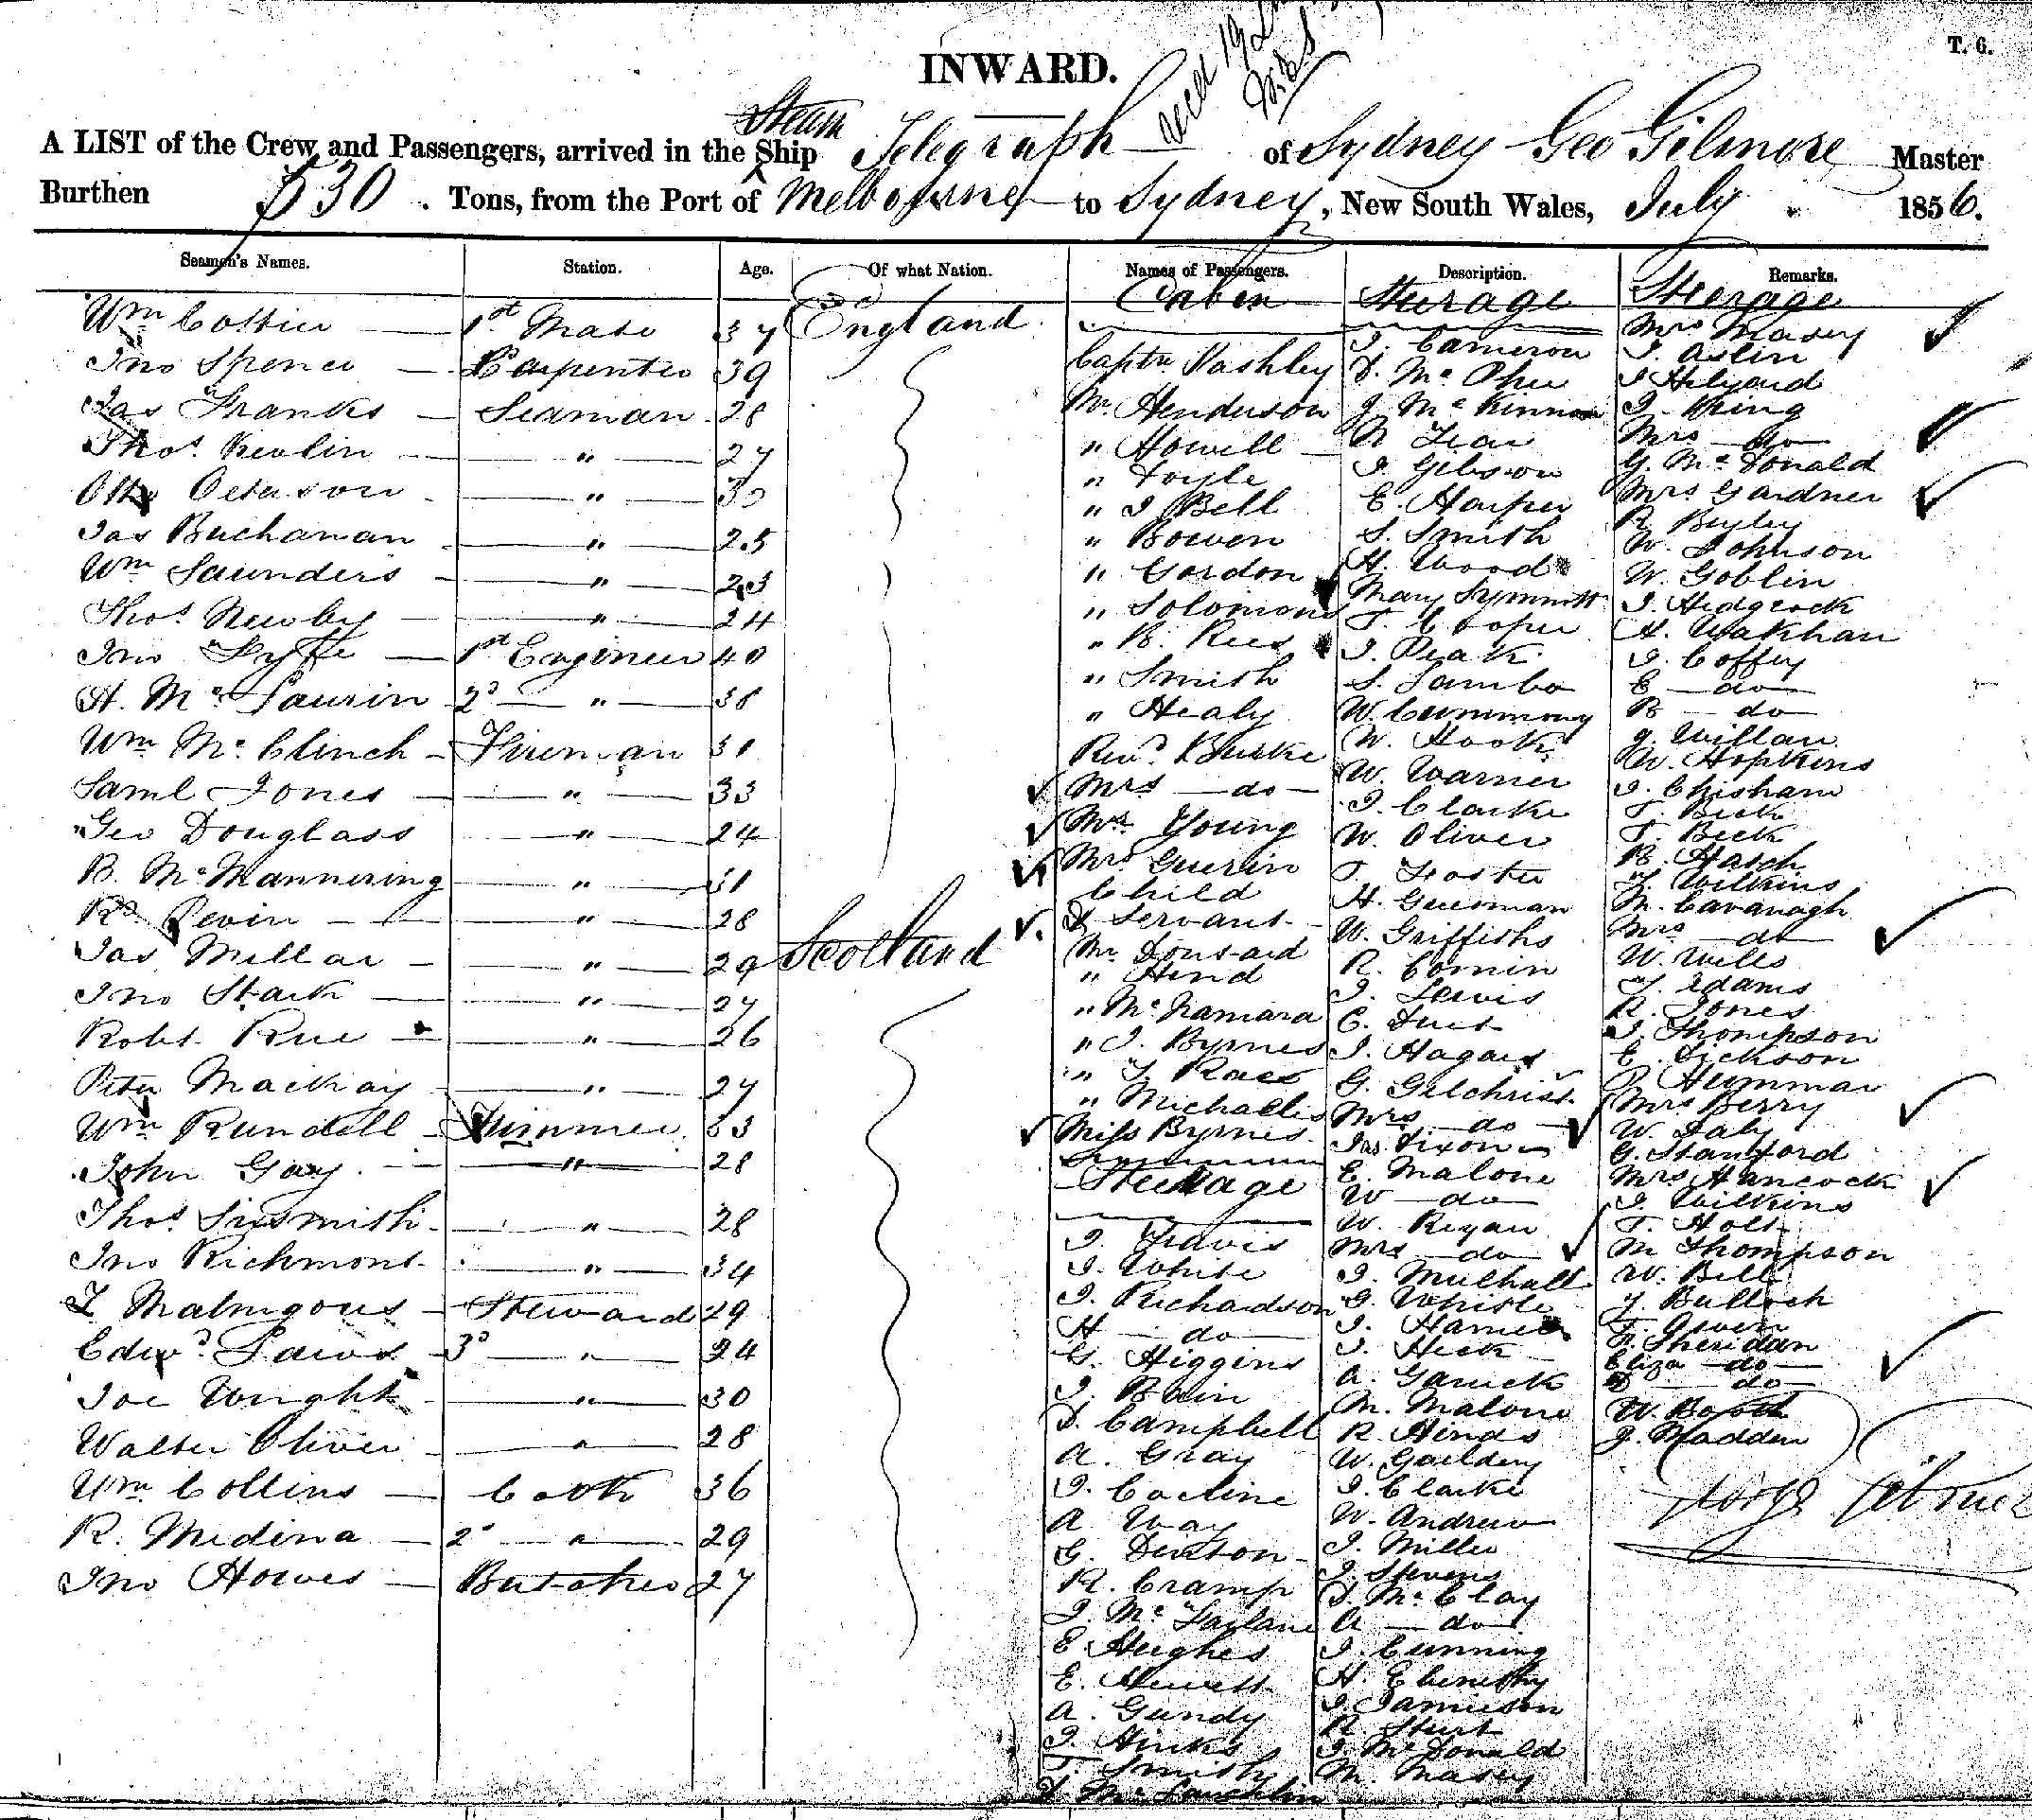 T. 6.
INWARD.
A LIST of the Crew and Passengers, arrived in the Steam Ship Telegraph of Sydney Geo Gilmore Master
Burthen 530 . Tons, from the Port of Melbourne to Sydney, New South Wales, July 1856.
Seamen's Names. Station. Age. Of what Nation. Names of Passengers. Description. Remarks.
Wm 1st Mate 37 England
Jno Spence Carpenter 39
Jas Franks Seaman 28
Thos. Kevlin " 27
Otto Peterson " 30
Jas Buchanan " 25
Wm Saunders " 23
Thos. Newby " 24
Jno Fyffe 1st Engineer 40
A. McLaurin 2d " 38
Wm McClinch Fireman 31
Saml Jones " 33
Geo Douglass " 24
B. McMannering " 31
Rd Pevin " 28
Jas Millar " 29 Scotland
Jno Stark " 27
Robt. Rue " 26
Peter Mackay " 27
Wm Rundell Trimmer 33
John Gay " 28
Thos " 28
Jno Richmond " 34
Steward 29
Edwd. Laws 3d " 24
Joe Wright " 30
Walter Oliver " 28
Wm Collins Cook 36
R. Medina 2d " 29
Jno Howes Butcher 27
Cabin
Captn Vashley
Mr. Henderson
" Howell
" Doyle
" J Bell
" Bowen
" Gordon
" Solomons
" B. Rees
" Smith
" Healy
Revd. Burke
Mrs do
Mrs Young
Mrs Guerin
Child
& Servant
Mr
" Hind
" McNamara
" J. Byrnes
"
" Michaelis
Miss Byrnes
Steerage
J. Travis
J. White
J. Richardson
H do
G. Higgins
J. Bain
D. Campbell
A. Gray
J.
A Way
G. Denton
R. Cramp
J. McFarlane
E Hughes
E. Hewett
A. Gundy
J. Hinks
T. Smith
D. McLauchlin
Steerage
J. Cameron
D. McPhee
J. McKinnon
J. Gibson
E. Harper
S. Smith
H. Wood
Mary
T. Cooper
J. Peak
S. Lambe
W. Cumming
W. Hook
W. Warner
J. Clarke
W. Oliver
T. Foster
H.
W. Griffiths
R. Comin
J. Lewis
J. Hagan
G. Gilchrist
Mrs do
Jas. Dixon
E. Malone
W do
W. Ryan
Mrs do
J. Mulhall
G. Whistle
J.
J. Heck
A. Garrick
M. Malone
R. Hinds
W.
J. Clarke
W. Andrew
J. Miller
J. Stevens
D. McClay
A do
J. Cunning
H.
J. Jamieson
R. Sturt
J. McDonald
M. Masey
Steerage
Mrs Masey
J. Aslin
J Hilyard
J. King
Mrs do
G. McDonald
Mrs Gardner
R. Begley
W. Johnson
W. Goblin
J. Hedgcock
A. Wakhan
J. Coffey
E do
B do
J. Willan
W. Hopkins
J. Chisham
T. Beck
T. Beck
B. Hatch
Wilkins
M. Cavanagh
Mrs do
W. Wills
Adams
R. Jones
J. Thompson
E. Dickson
Hummar
Mrs Berry
W. Daly
G. Stanford
Mrs Hancock
J. Wilkins
T. Holt
M Thompson
W. Bell
J. Bulloch
T. Owen
P. Sheridan
Eliza do
do
W. Booth
J. Madden
George Gilmore